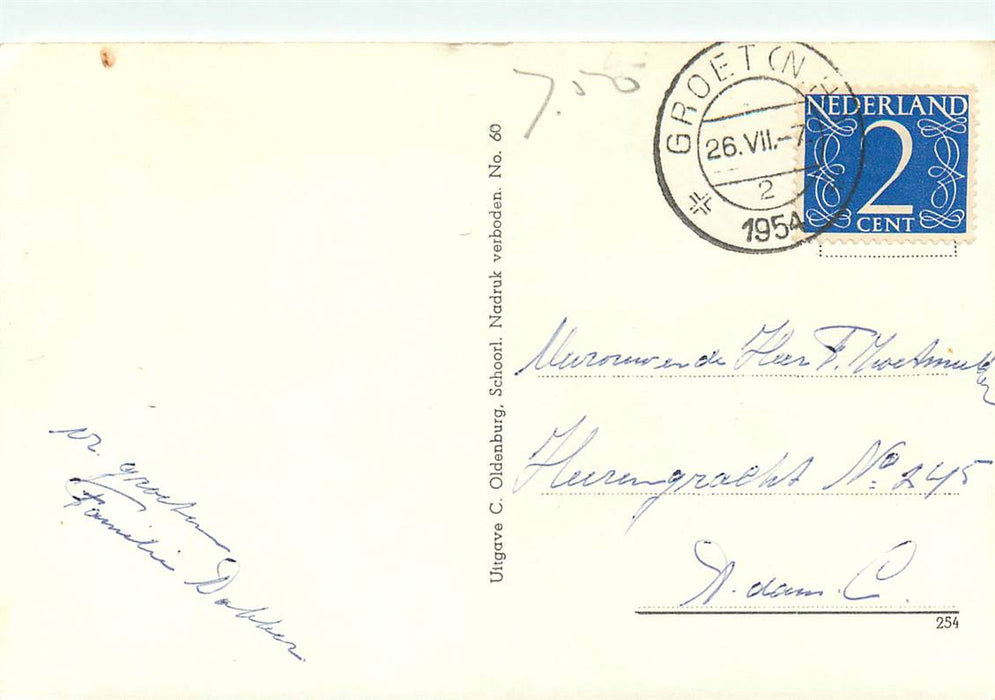 7.50
GROET (N.H.)
26.VII.-7
2
1954
NEDERLAND
2
CENT
Uitgave C. Oldenburg, Schoorl. Nadruk verboden. No. 60
Mevrouw en de Heer F.
Heerengracht No. 245
A. dam. C.
254
vr. groeten
Familie Dekker